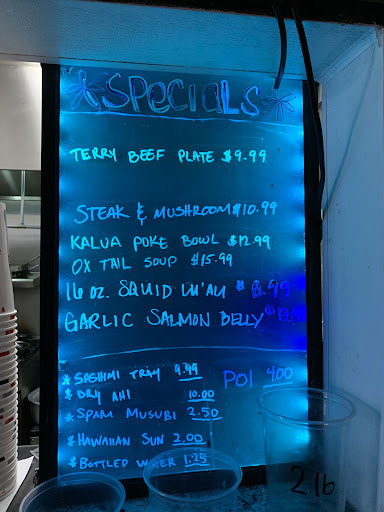 *SPECIALS*
TERRY BEEF PLATE $9.99
STEAK & MUSHROOM $10.99
KALUA POKE BOWL $12.99
OX TAIL SOUP $15.99
16 oz. SQUID LU'AU $ 8.99
GARLIC SALMON BELLY $
* SASHIMI TRAY 9.99
* DRY AHI 10.00
* SPAM MUSUBI 2.50
* HAWAIIAN SUN 2.00
* BOTTLED WATER 1.25
POI 400
2 lb